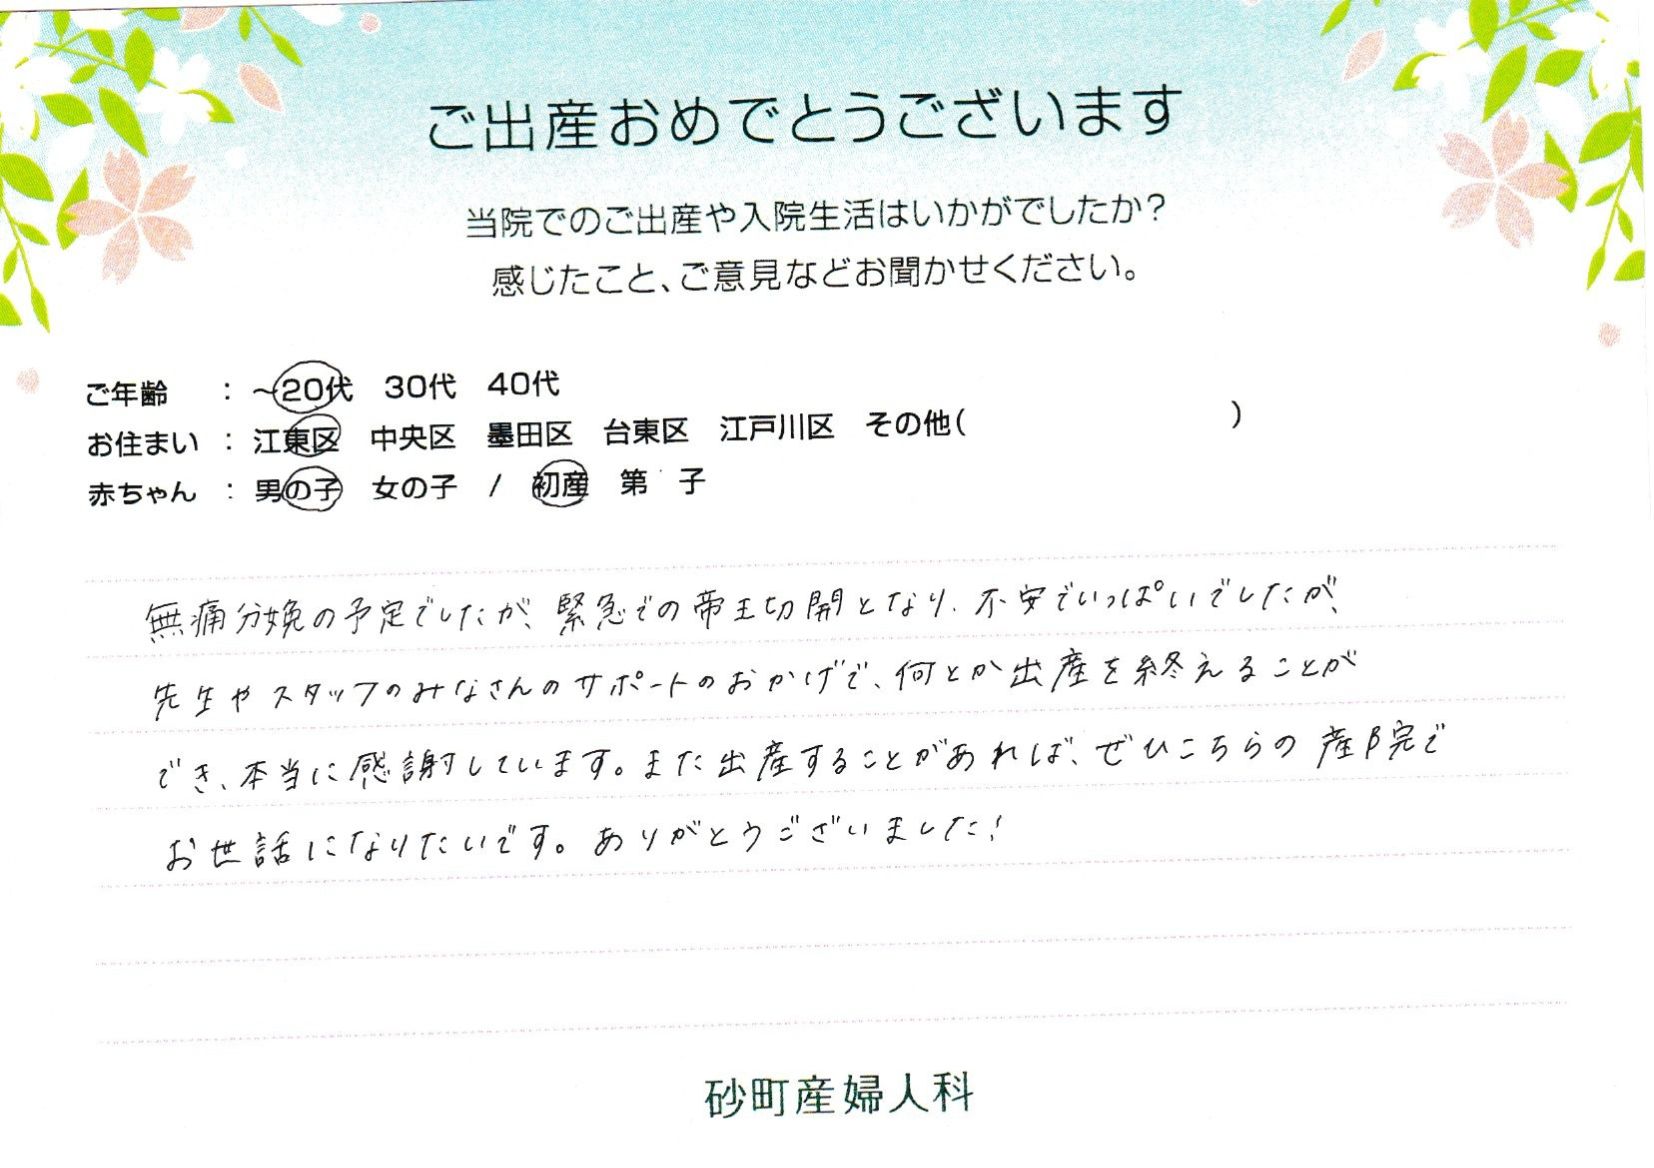 ご出産おめでとうございます
当院でのご出産や入院生活はいかがでしたか?
感じたこと、ご意見などお聞かせください。
ご年齢 : ~20代 30代 40代
お住まい : 江東区 中央区 墨田区 台東区 江戸川区 その他( )
赤ちゃん : 男の子 女の子 / 初産 第 子
無痛分娩の予定でしたが、緊急での帝王切開となり、不安でいっぱいでしたが、
先生やスタッフのみなさんのサポートのおかげで、何とか出産を終えることが
でき、本当に感謝しています。また出産することがあれば、ぜひこちらの産院で
お世話になりたいです。ありがとうございました!
砂町産婦人科